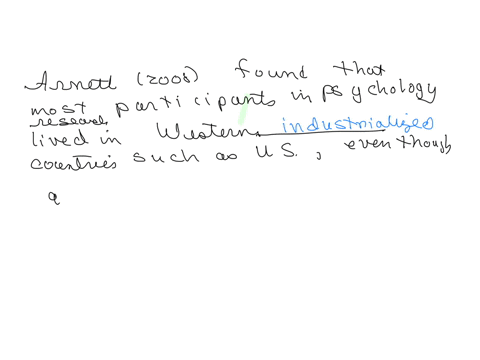 Arnett (2008) found that
most participants in psychology
research
lived in Western, industrialized
countries such as U.S., even though
a